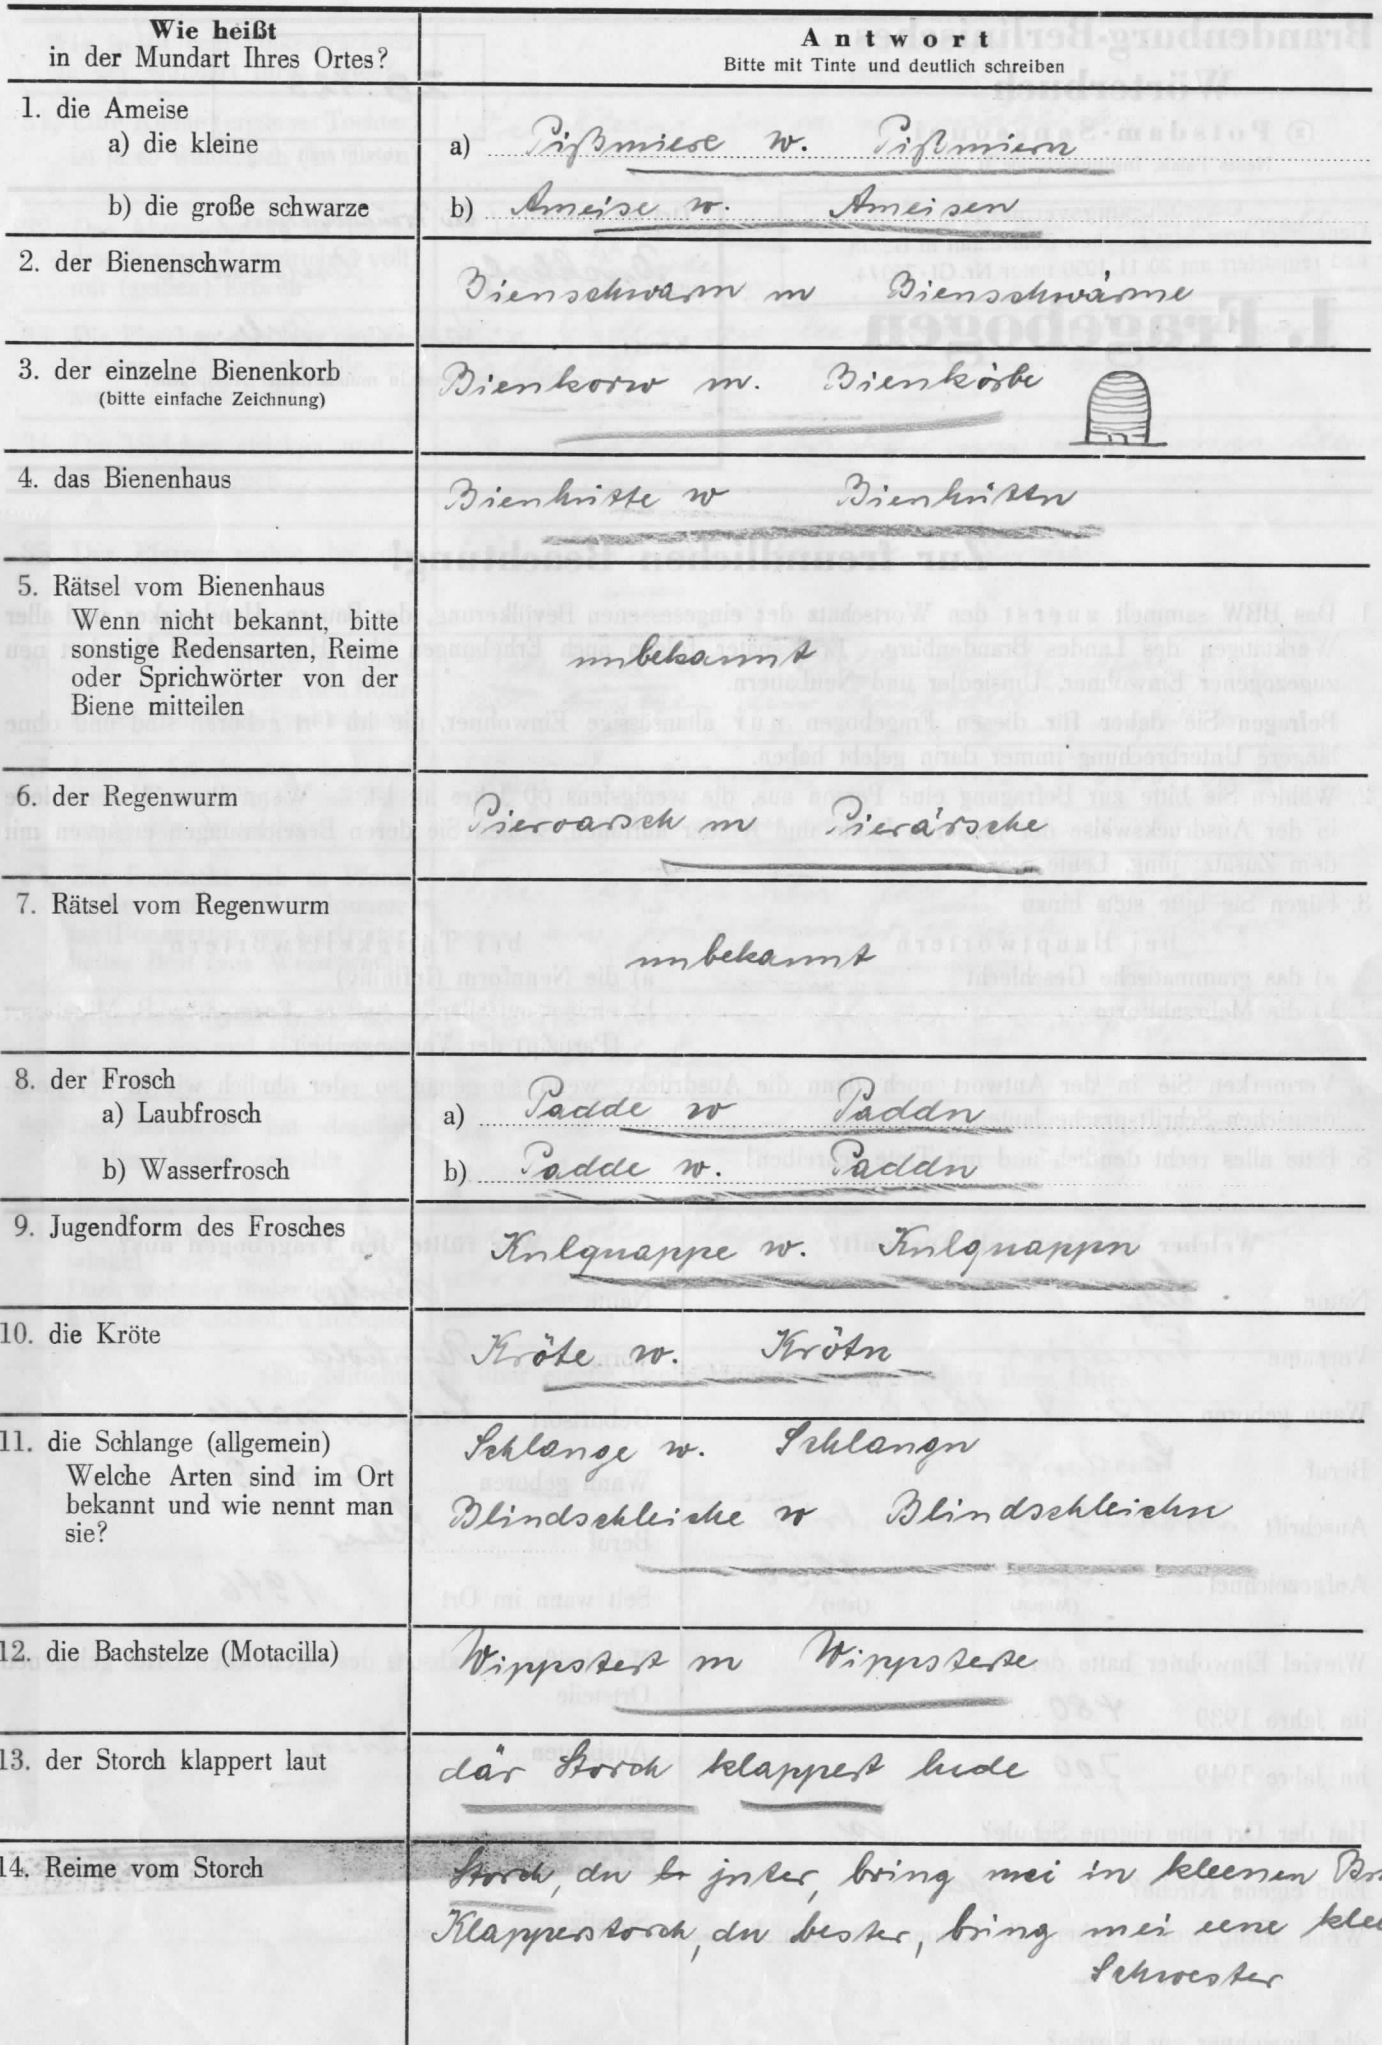 Wie heißt
in der Mundart Ihres Ortes?
Antwort
Bitte mit Tinte und deutlich schreiben
1. die Ameise
a) die kleine
a) Pißmiere w. Pißmiern
b) die große schwarze
b) Ameise w. Ameisen
2. der Bienenschwarm
Bienschwarm m Bienschwärme
3. der einzelne Bienenkorb
(bitte einfache Zeichnung)
Bienkorw m. Bienkörbe
4. das Bienenhaus
Bienhütte w Bienhüttn
5. Rätsel vom Bienenhaus
Wenn nicht bekannt, bitte
sonstige Redensarten, Reime
oder Sprichwörter von der
Biene mitteilen
unbekannt
6. der Regenwurm
Pieroarsch m Pierärsche
7. Rätsel vom Regenwurm
unbekannt
8. der Frosch
a) Laubfrosch
a) Padde w Paddn
b) Wasserfrosch
b) Padde w. Paddn
9. Jugendform des Frosches
Kulquappe w. Kulquappn
10. die Kröte
Kröte w. Krötn
11. die Schlange (allgemein)
Welche Arten sind im Ort
bekannt und wie nennt man
sie?
Schlange w. Schlangn
Blindschleiche w Blindschleichn
12. die Bachstelze (Motacilla)
Wippstert m Wippsterte
13. der Storch klappert laut
där Storch klappert lude
14. Reime vom Storch
Storch, du juter, bring mei in kleenen
Klapperstorch, du bester, bring mei eene
Schwester